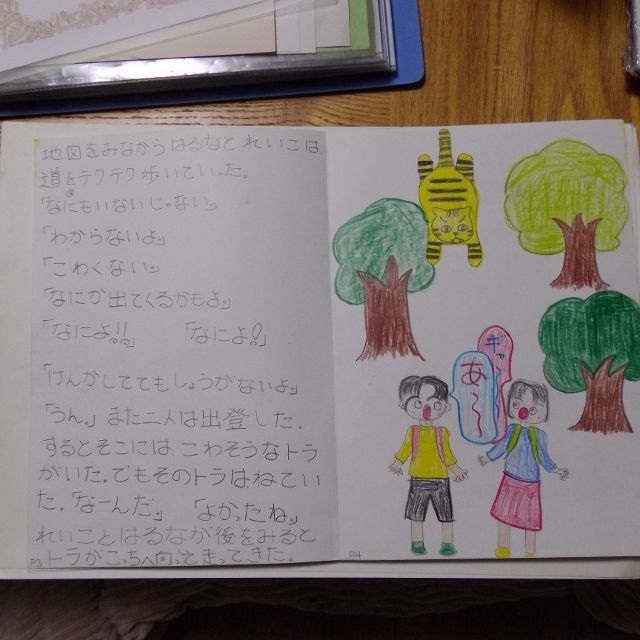 地図をみながらはるなとれいこは、
道をテクテク歩いていった。
「なにもいないじゃない」
「わからないよ」
「こわくない」
「なにか出てくるかもよ」
「なによ!!」　「なによ!」
「けんかしててもしょうがないよ」
「うん。」また二人は出登した。
するとそこには、こわそうなトラ
がいた。でもそのトラはねてい
た。「なーんだ」　「よかったね」
れいことはるなが後をみると
トラがこっちへ向ってまってきた。
P3
P4
きゃ〜
あ〜